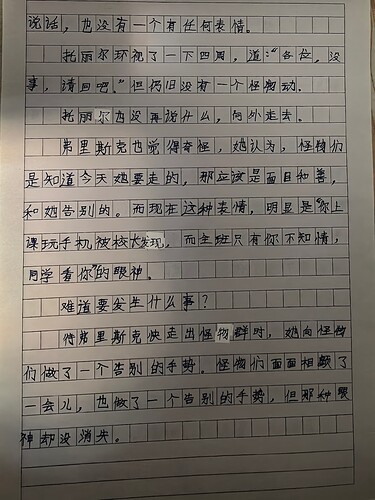 说话，也没有一个有任何表情。
托丽尔环视了一下四周，道：“各位，没
事，请回吧。”但仍旧没有一个怪物动.
托丽尔也没再说什么，向外走去。
弗里斯克也觉得奇怪，她认为，怪物们
是知道今天她要走的，那应该是面目和善，
和她告别的。而现在这种表情，明显是“你上
课玩手机被校长发现，而全班只有你不知情，
同学看你”的眼神。
难道要发生什么事？
待弗里斯克快走出怪物群时，她向怪物
们做了一个告别的手势。怪物们面面相觑了
一会儿，也做了一个告别的手势，但那种眼
神却没消失。